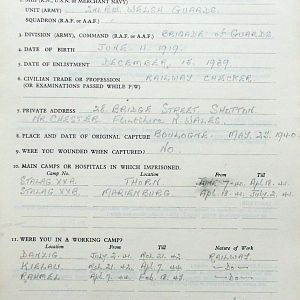 UNIT (ARMY) 2nd BN WELSH GUARDS.
SQUADRON (R.A.F. or A.A.F.)
3. DIVISION (ARMY), COMMAND (R.A.F. or A.A.F.) BRIGADE OF GUARDS.
4. DATE OF BIRTH JUNE 11 1919.
5. DATE OF ENLISTMENT DECEMBER, 15. 1939.
6. CIVILIAN TRADE OR PROFESSION RAILWAY CHECKER.
(OR EXAMINATIONS PASSED WHILE P/W)
7. PRIVATE ADDRESS 28 BRIDGE STREET SHOTTON.
NR CHESTER FLINTSHIRE N. WALES.
8. PLACE AND DATE OF ORIGINAL CAPTURE BOULOGNE. MAY. 25. 1940.
9. WERE YOU WOUNDED WHEN CAPTURED? NO.
10. MAIN CAMPS OR HOSPITALS IN WHICH IMPRISONED.
Camp No. Location From Till
STALAG XXA. THORN June 7-40. Apl. 18. 41.
STALAG XXB. MARIENBURG Apl. 18. 41. July 2. 41.
11. WERE YOU IN A WORKING CAMP?
Location From Till Nature of Work
DANZIG July 2-41. Nov. 21. 42. RAILWAY
Nov. 21. 42. Apl. 7. 44. —Do—
RAHMEL Apl 7. 44. Feb. 18. 45. —Do—